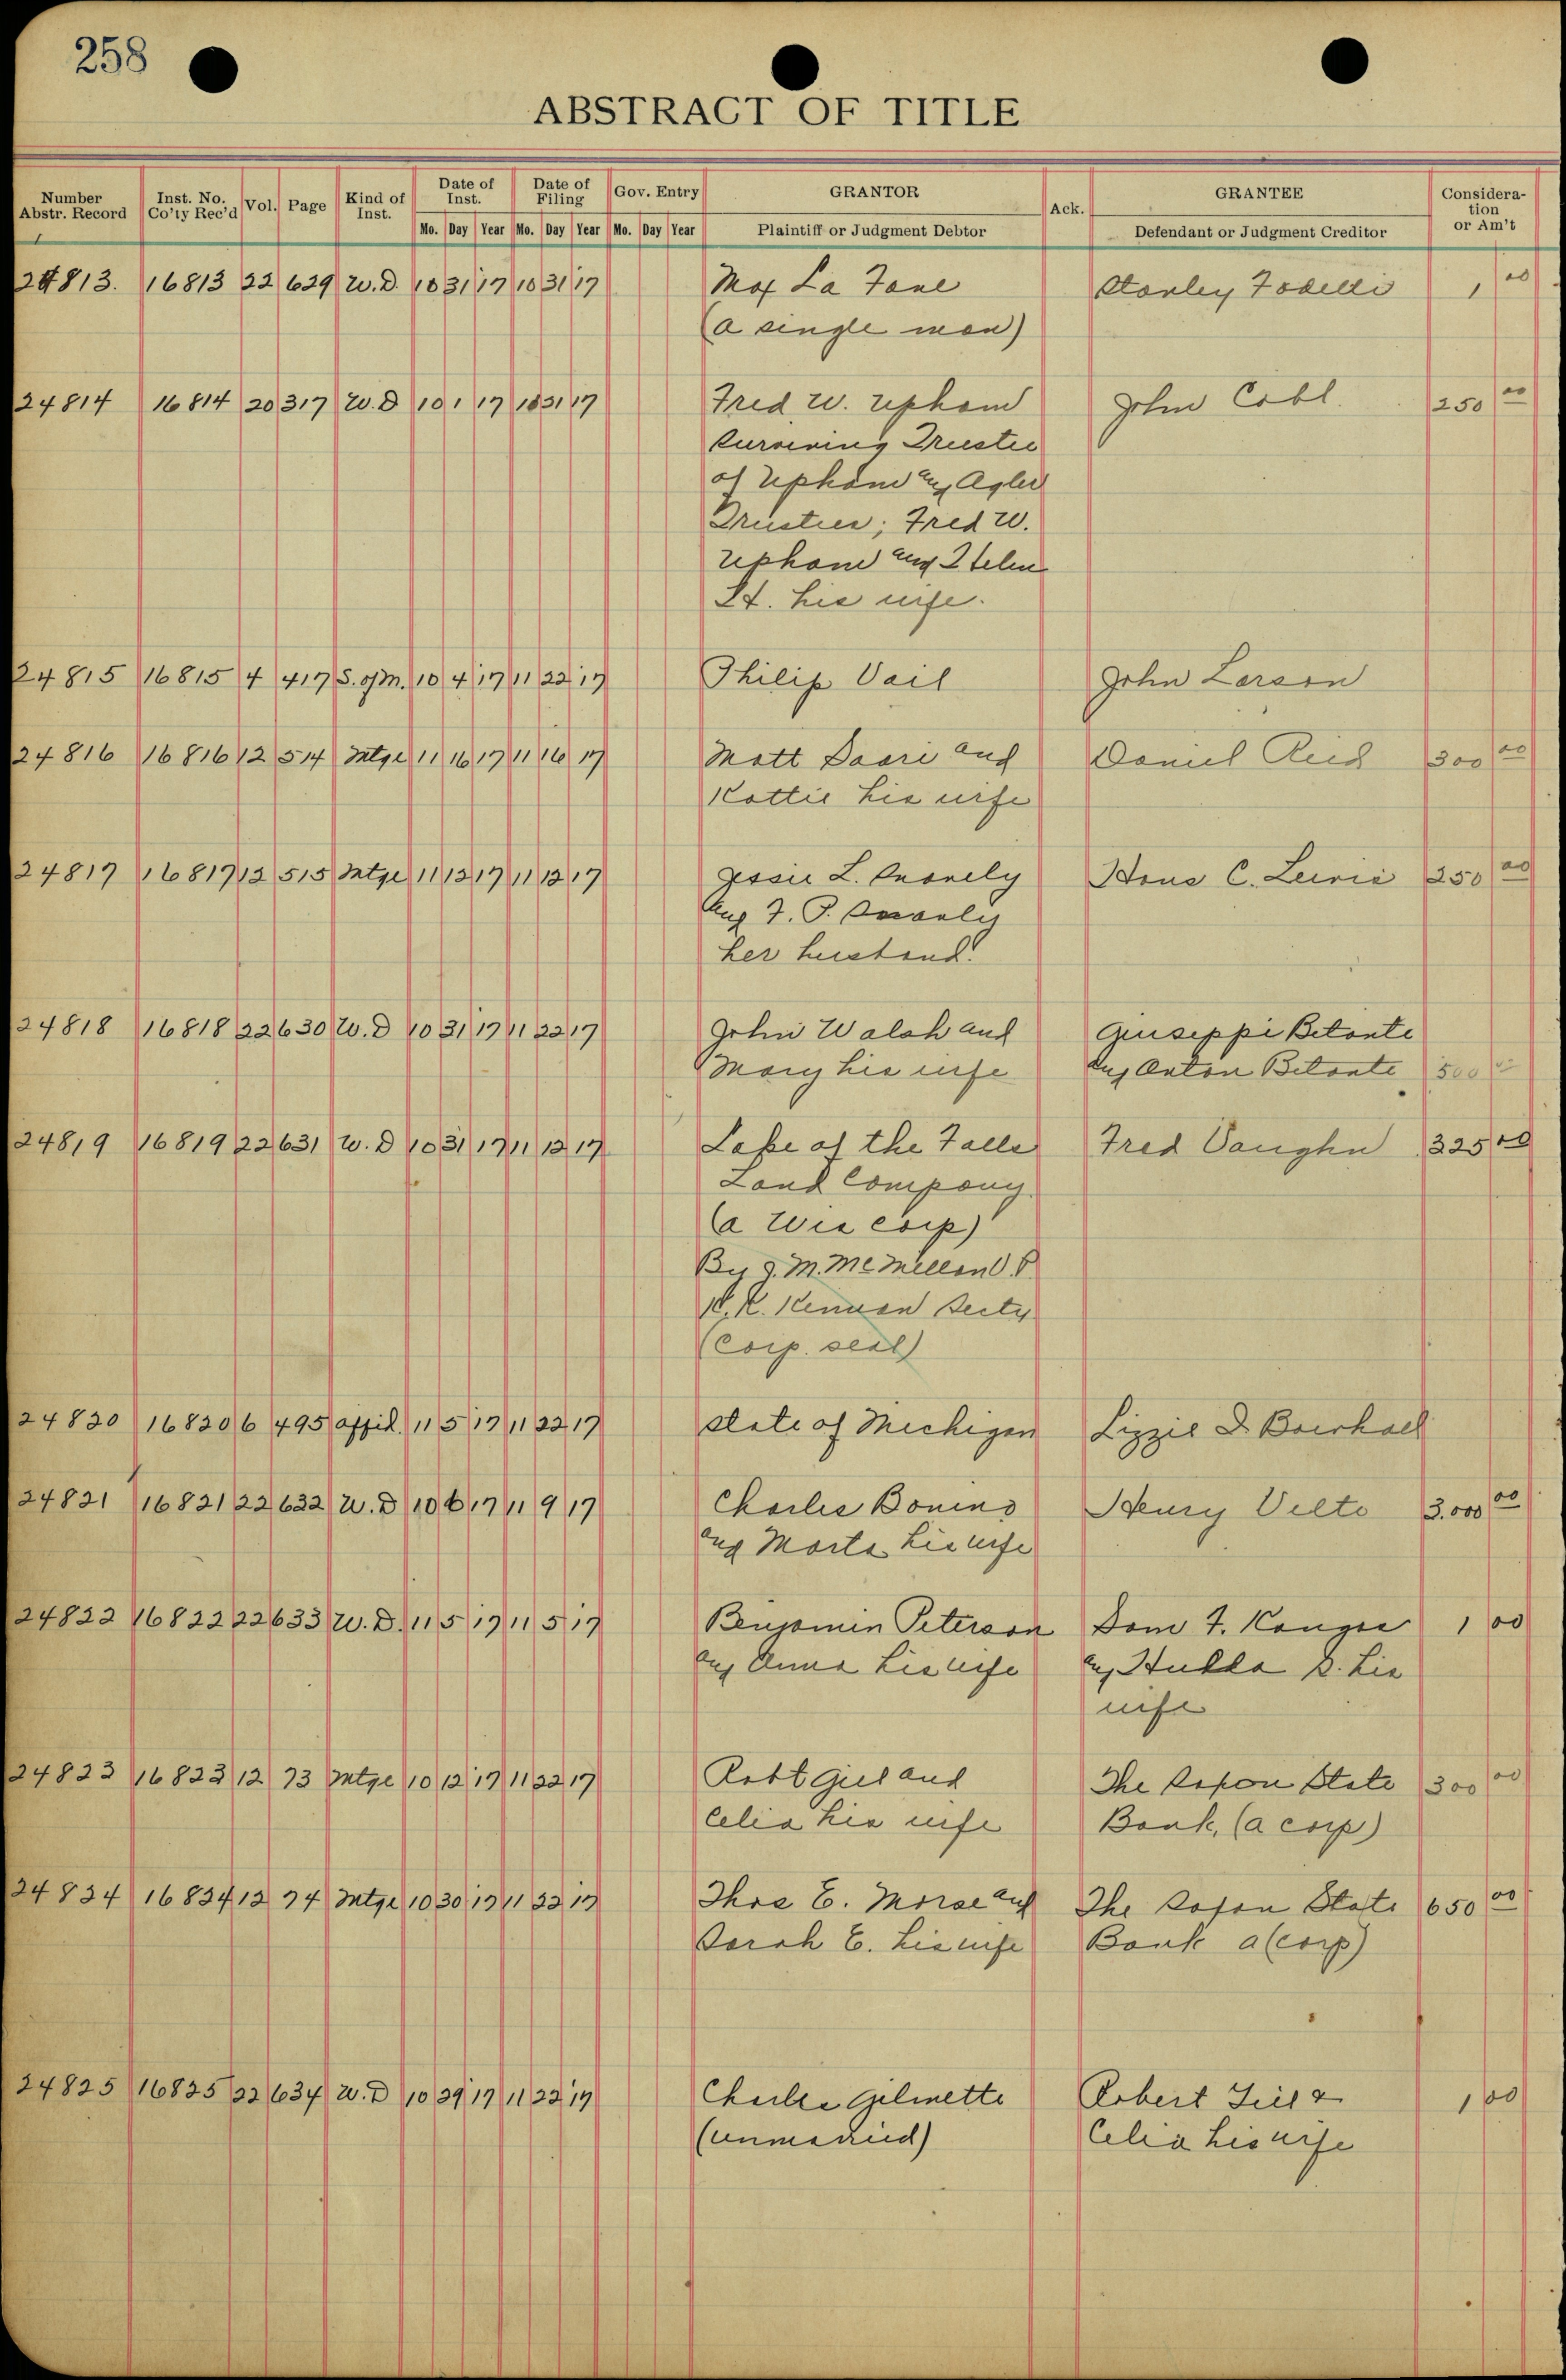 258
ABSTRACT OF TITLE
Number Abstr. Record Inst. No. Co'ty Rec'd Vol. Page Kind of Inst. Date of Inst. Date of Filing Gov. Entry GRANTOR Ack. GRANTEE Consideration or Am't
Mo. Day Year Mo. Day Year Mo. Day Year Plaintiff or Judgment Debtor Defendant or Judgment Creditor
24813. 16813 22 629 W.D. 10 31 17 10 31 17 Max La Fave Stanley 1 00
(a single man)
24814 16814 20 317 W.D 10 1 17 10 31 17 Fred W. Upham John Cobl. 250 00
Surviving Trustee
of Upham and Agler
Trustees; Fred W.
Upham and Helen
H. his wife.
24815 16815 4 417 S. of M. 10 4 17 11 22 17 Philip Vail John Larson
24816 16816 12 514 Mtge 11 16 17 11 16 17 Matt Saari and Daniel Reid 300 00
Kattie his wife
24817 16817 12 515 Mtge 11 12 17 11 12 17 Jessie L. Snavely Hans C. 250 00
and F. P. Snavely
her husband.
24818 16818 22 630 W.D 10 31 17 11 22 17 John Walsh and Giuseppi Betante
Mary his wife and Anton Betante 500 00
24819 16819 22 631 W.D 10 31 17 11 12 17 Lake of the Falls Fred Vaughn 325 00
Land Company
(a Wis corp)
By J. M. McMillan V.P.
K. K. Kennan Secty
(Corp. seal)
24820 16820 6 495 affid. 11 5 17 11 22 17 State of Michigan Lizzie D.
24821 16821 22 632 W.D 10 6 17 11 9 17 Charles Bonins Henry Velte 3.000 00
and Marta his wife
24822 16822 22 633 W.D. 11 5 17 11 5 17 Benjamin Peterson Sam F. Kangas 1 00
and Anna his wife and Hulda S. his
wife
24823 16823 12 73 Mtge 10 12 17 11 22 17 Robt Giel and The Saxon State 300 00
Celia his wife Bank, (a corp)
24824 16824 12 74 Mtge 10 30 17 11 22 17 Thos E. Morse and The Saxon State 650 00
Sarah E. his wife Bank a (corp)
24825 16825 22 634 W.D 10 29 17 11 22 17 Charles Gelinette Robert Giel & 1 00
(unmarried) Celia his wife